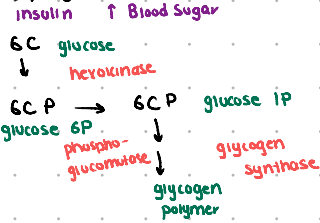 insulin ↑ Blood Sugar
6C glucose
hexokinase
6CP → 6CP glucose 1P
glucose 6P
phospho-
glucomutase
glycogen
synthase
glycogen
polymer